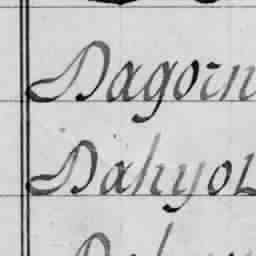 Dagorn
Dahyot